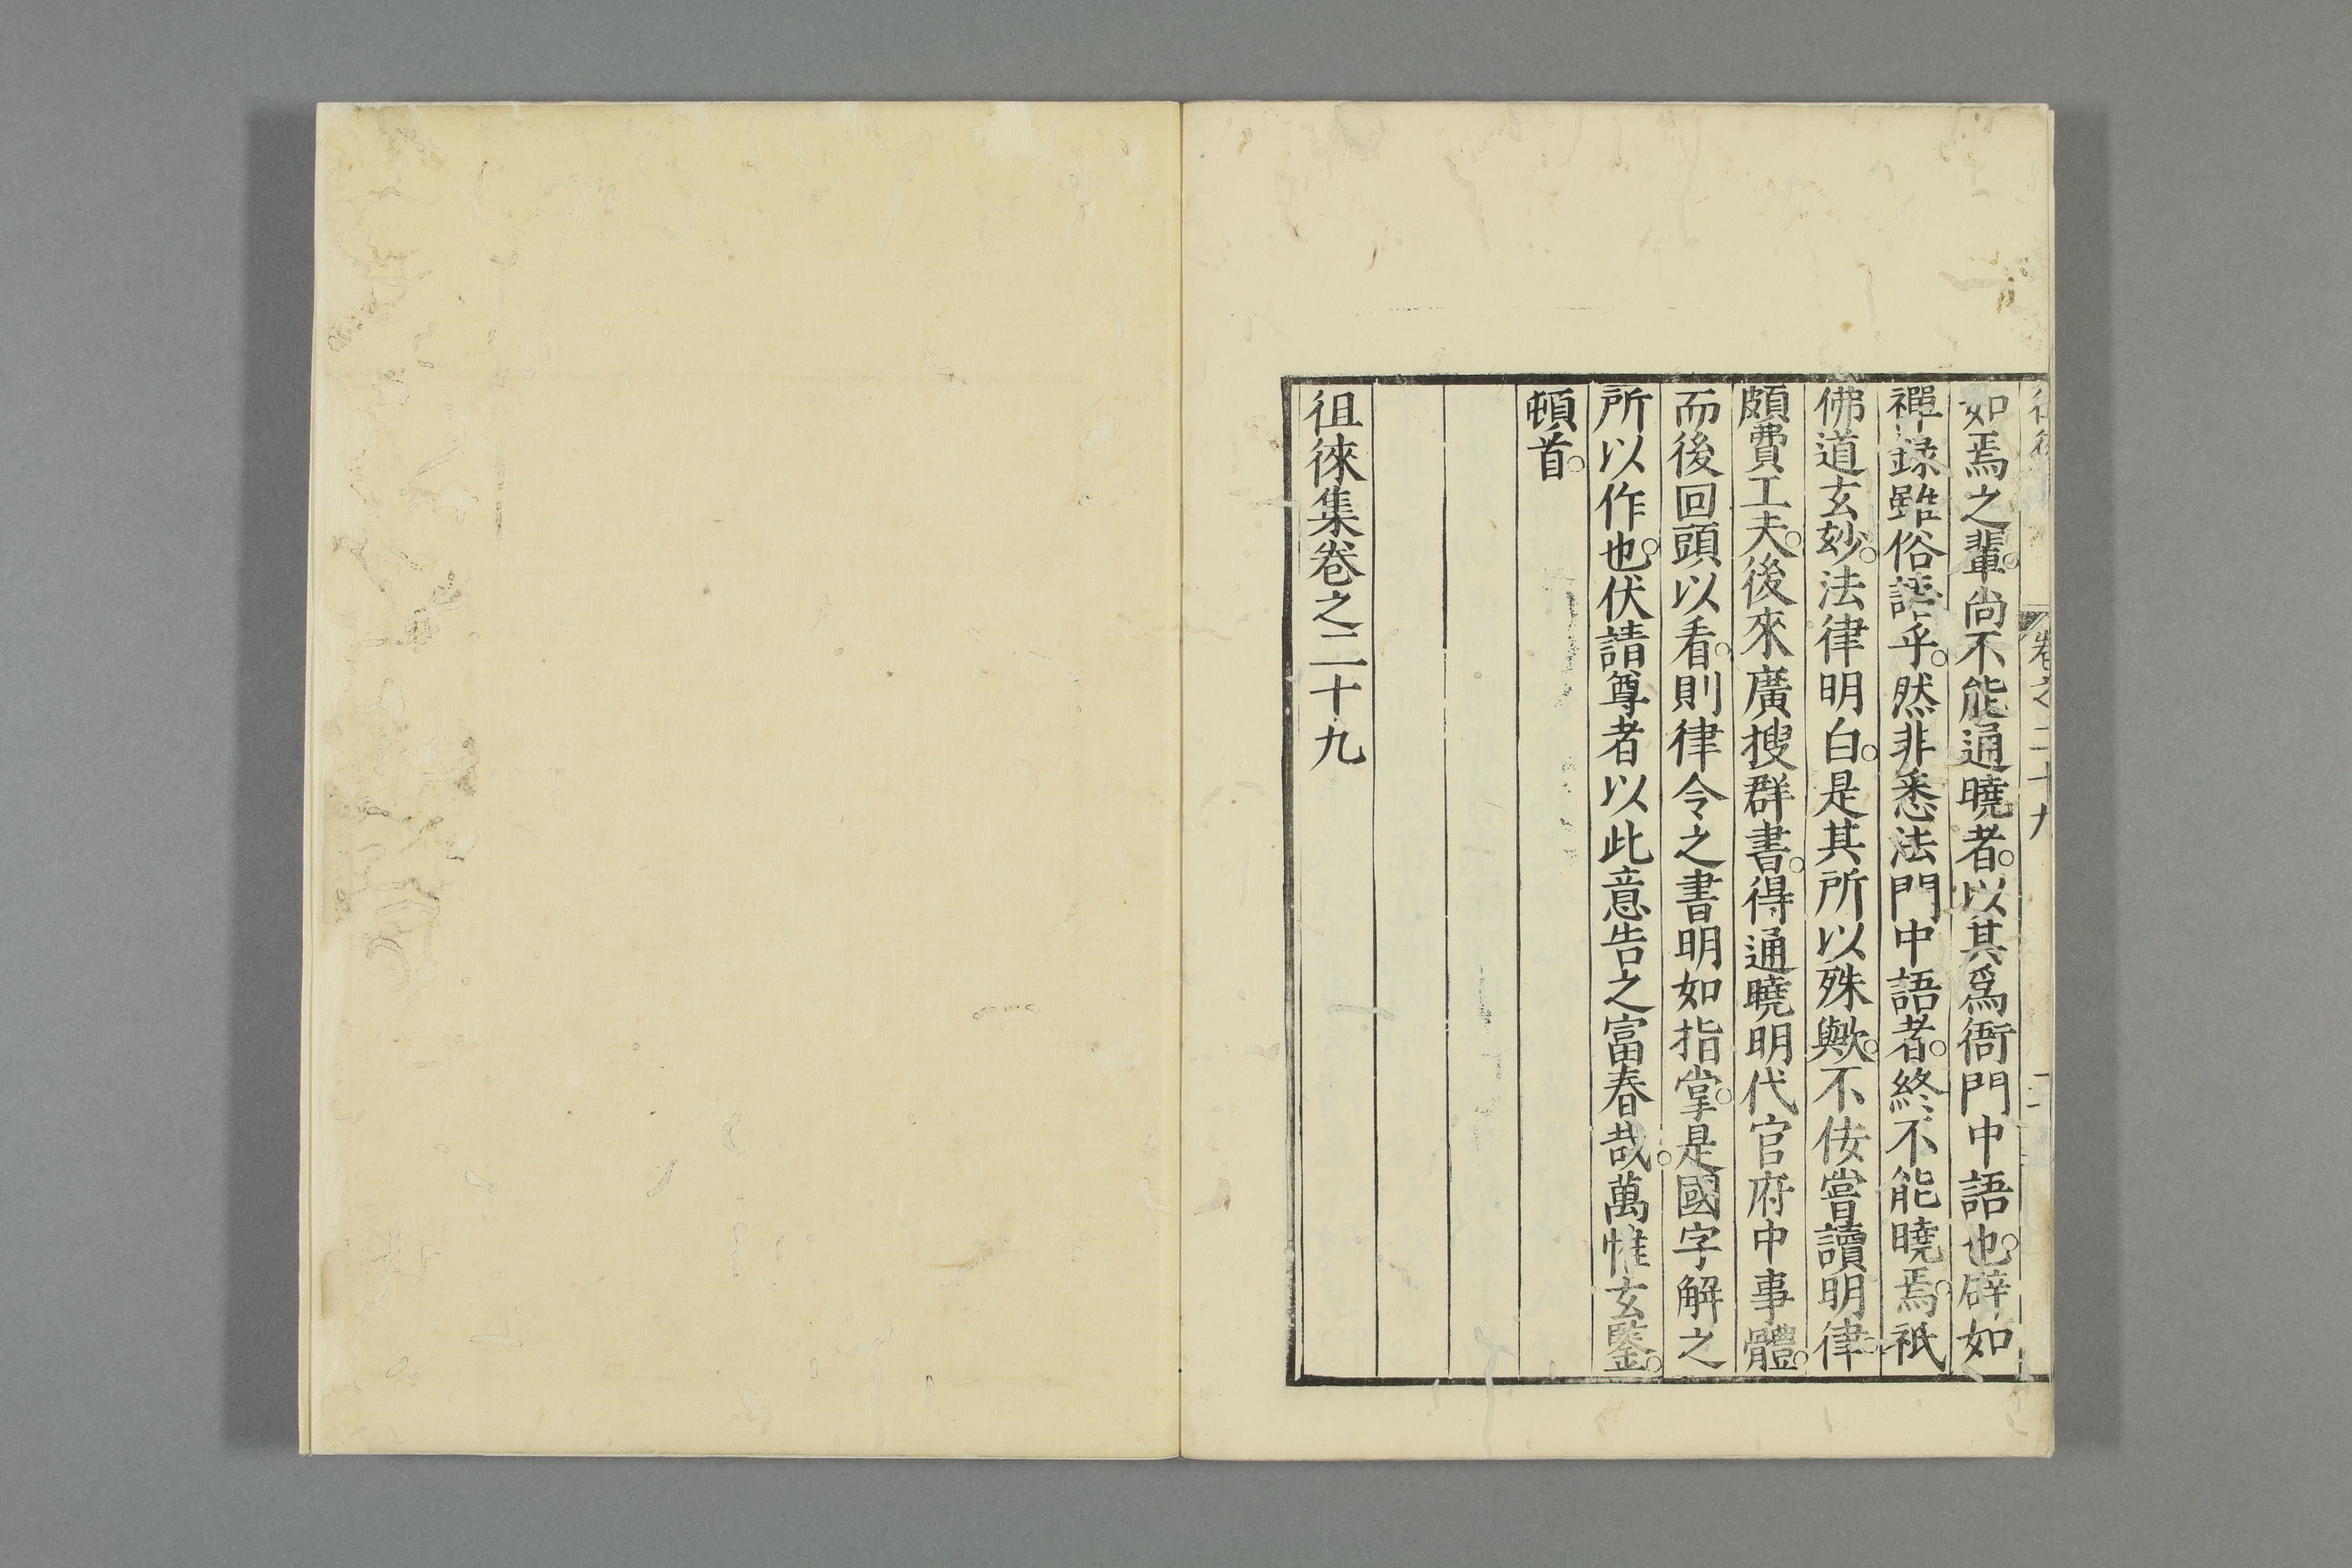 卷之二十九
如焉之輩。尚不能通曉者。以其爲衙門中語也。辟如
禪録雖俗語乎。然非悉法門中語者。終不能曉焉。祇
佛道玄妙。法律明白。是其所以殊歟。不佞嘗讀明律。
頗費工夫。後來廣搜群書。得通曉明代官府中事體。
而後回頭以看。則律令之書明如指掌。是國字解之
所以作也。伏請尊者以此意告之富春哉。萬惟玄鑒。
頓首。
徂徠集卷之二十九